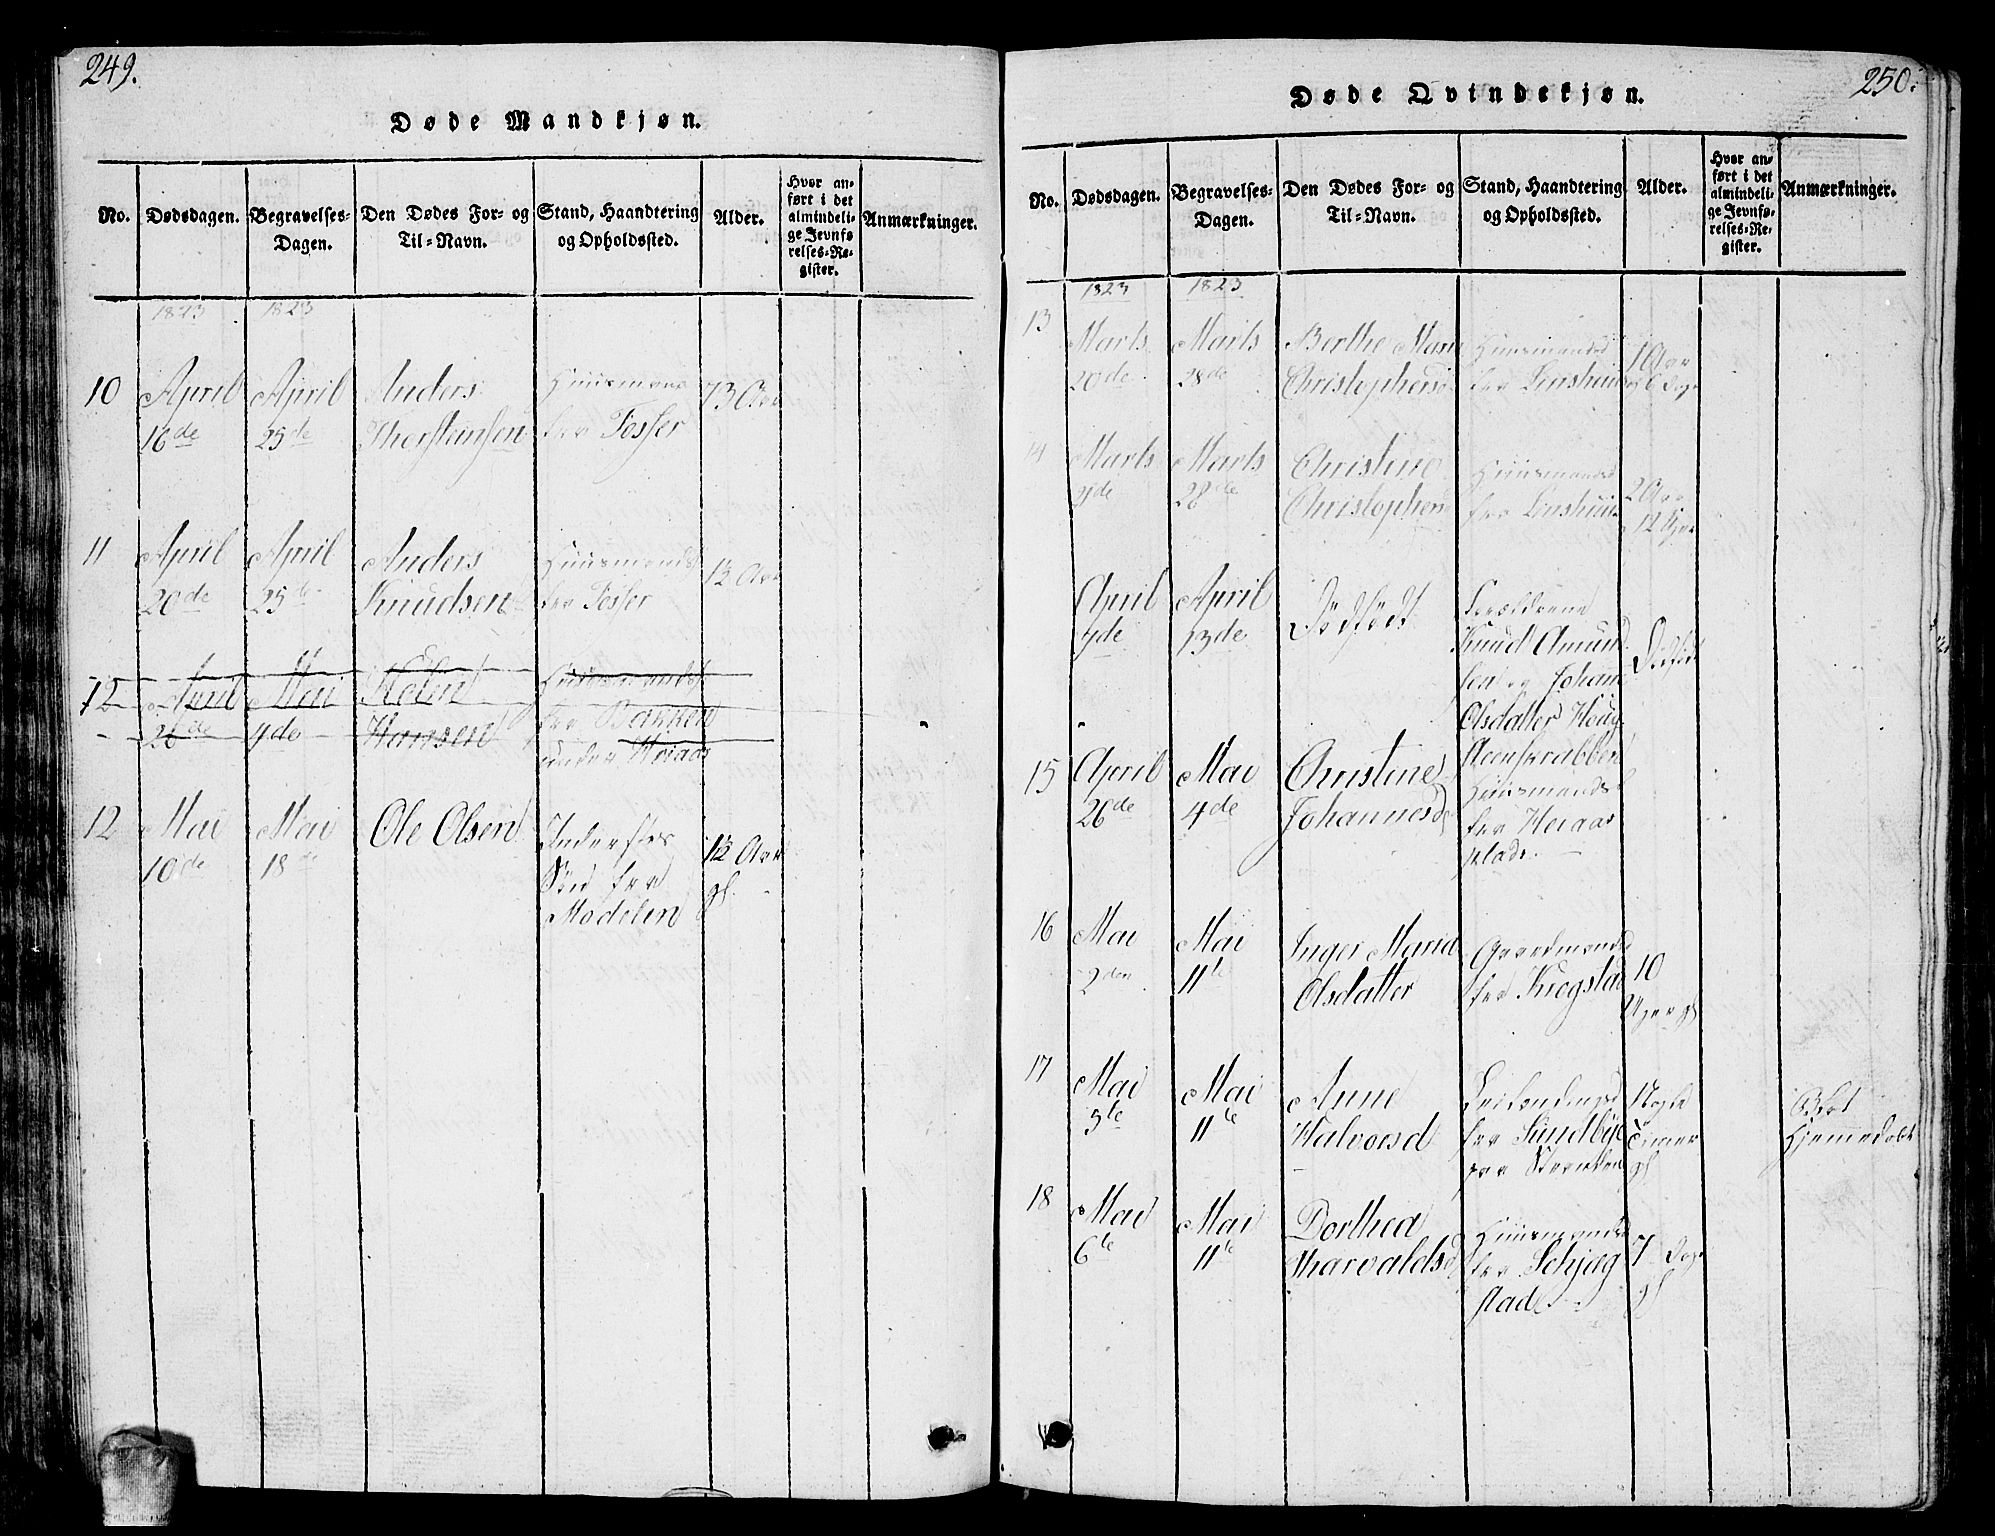 249.
Døde Mandkjøn.
No.
Dødsdagen.
Begravelses-
Dagen.
Den Dødes For- og
Til-Navn.
Stand, Haandtering
og Opholdssted.
Alder.
Hvor an-
ført i det
almindeli-
ge Jevnfø
relses-Re-
gister.
Anmærkninger.
1823
1823
10
April
16de
April
25de
Anders
Thorstensen
Huusmand
fra Fosser
73 Aar
11
April
20de
April
25de
Anders
Knudsen
Huusmands
fra Fosser
1½ Aar
12
April
26de
Mai
4de
Hansen
Huusmands
fra Bakken
under Heiaas
12
Mai
10de
Mai
18de
Ole Olsen
Inderstes
Søn fra
Modelen
1½ Aar
gl.
250.
Døde Qvindekjøn.
No.
Dødsdagen.
Begravelses-
Dagen.
Den Dødes For- og
Til-Navn.
Stand, Haandtering
og Opholdssted.
Alder.
Hvor an-
ført i det
almindeli-
ge Jevnfø-
relses-Re-
gister.
Anmærkninger.
1823
1823
13
Marts
20de
Marts
28de
Berthe Marie
Christophersd
Huusmands
fra Linshuus
1 Aar
6 Dage
14
Marts
Marts
28de
Christine
Christophers
Huusmands
fra Linshuus
2 Aar
12 Uger
April
4de
April
13de
Dödfödt
Forældrene
Knud Amund
sen og Johan
Olsdatter Houg
Steenskrabben
Dödfödt
15
April
26de
Mai
4de
Christine
Johannesd
Huusmands
fra Heiaas
plads.
16
Mai
2den
Mai
11te
Inger Maria
Olsdatter
Gaardmands
fra Krogstad
10
Uger gl
17
Mai
3te
Mai
11te
Anne
Halvorsd
Leilændings
fra Sundbye
paa Stranden
Nogle
Timer
gl
Blot
Hjemmedöbt
18
Mai
6te
Mai
11te
Dorthea
Tharvaldsd
Huusmands
fra Schjæg
stad
7 Dage
gl